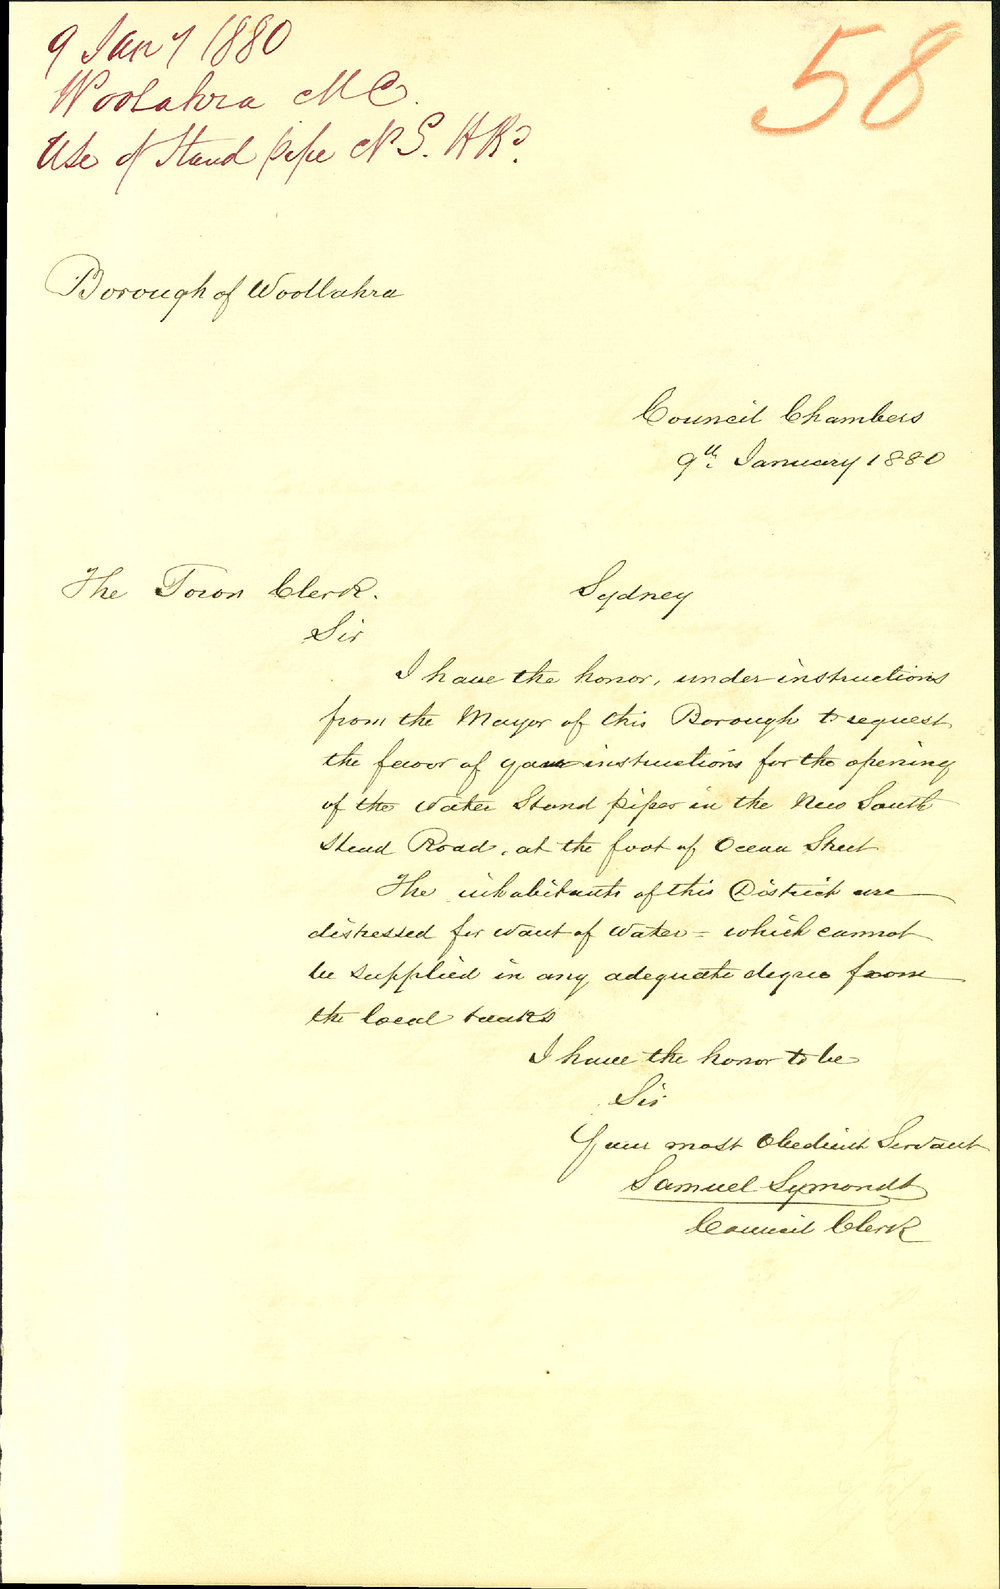 9 Jany 1880
Woolahra M C.
Use of Stand pipe N S. H Rd.
58
Borough of Woollahra
Council Chambers
9th January 1880
The Town Clerk.
Sydney
Sir
I have the honor, under instructions
from the Mayor of this Borough to request
the favor of your instructions for the opening
of the Water Stand pipes in the New South
Head Road, at the foot of Ocean Street
The inhabitants of this District are
distressed for want of Water = which cannot
be supplied in any adequate degree from
the local tanks
I have the honor to be
Sir
Your most Obedient Servant
Samuel Symonds
Council Clerk